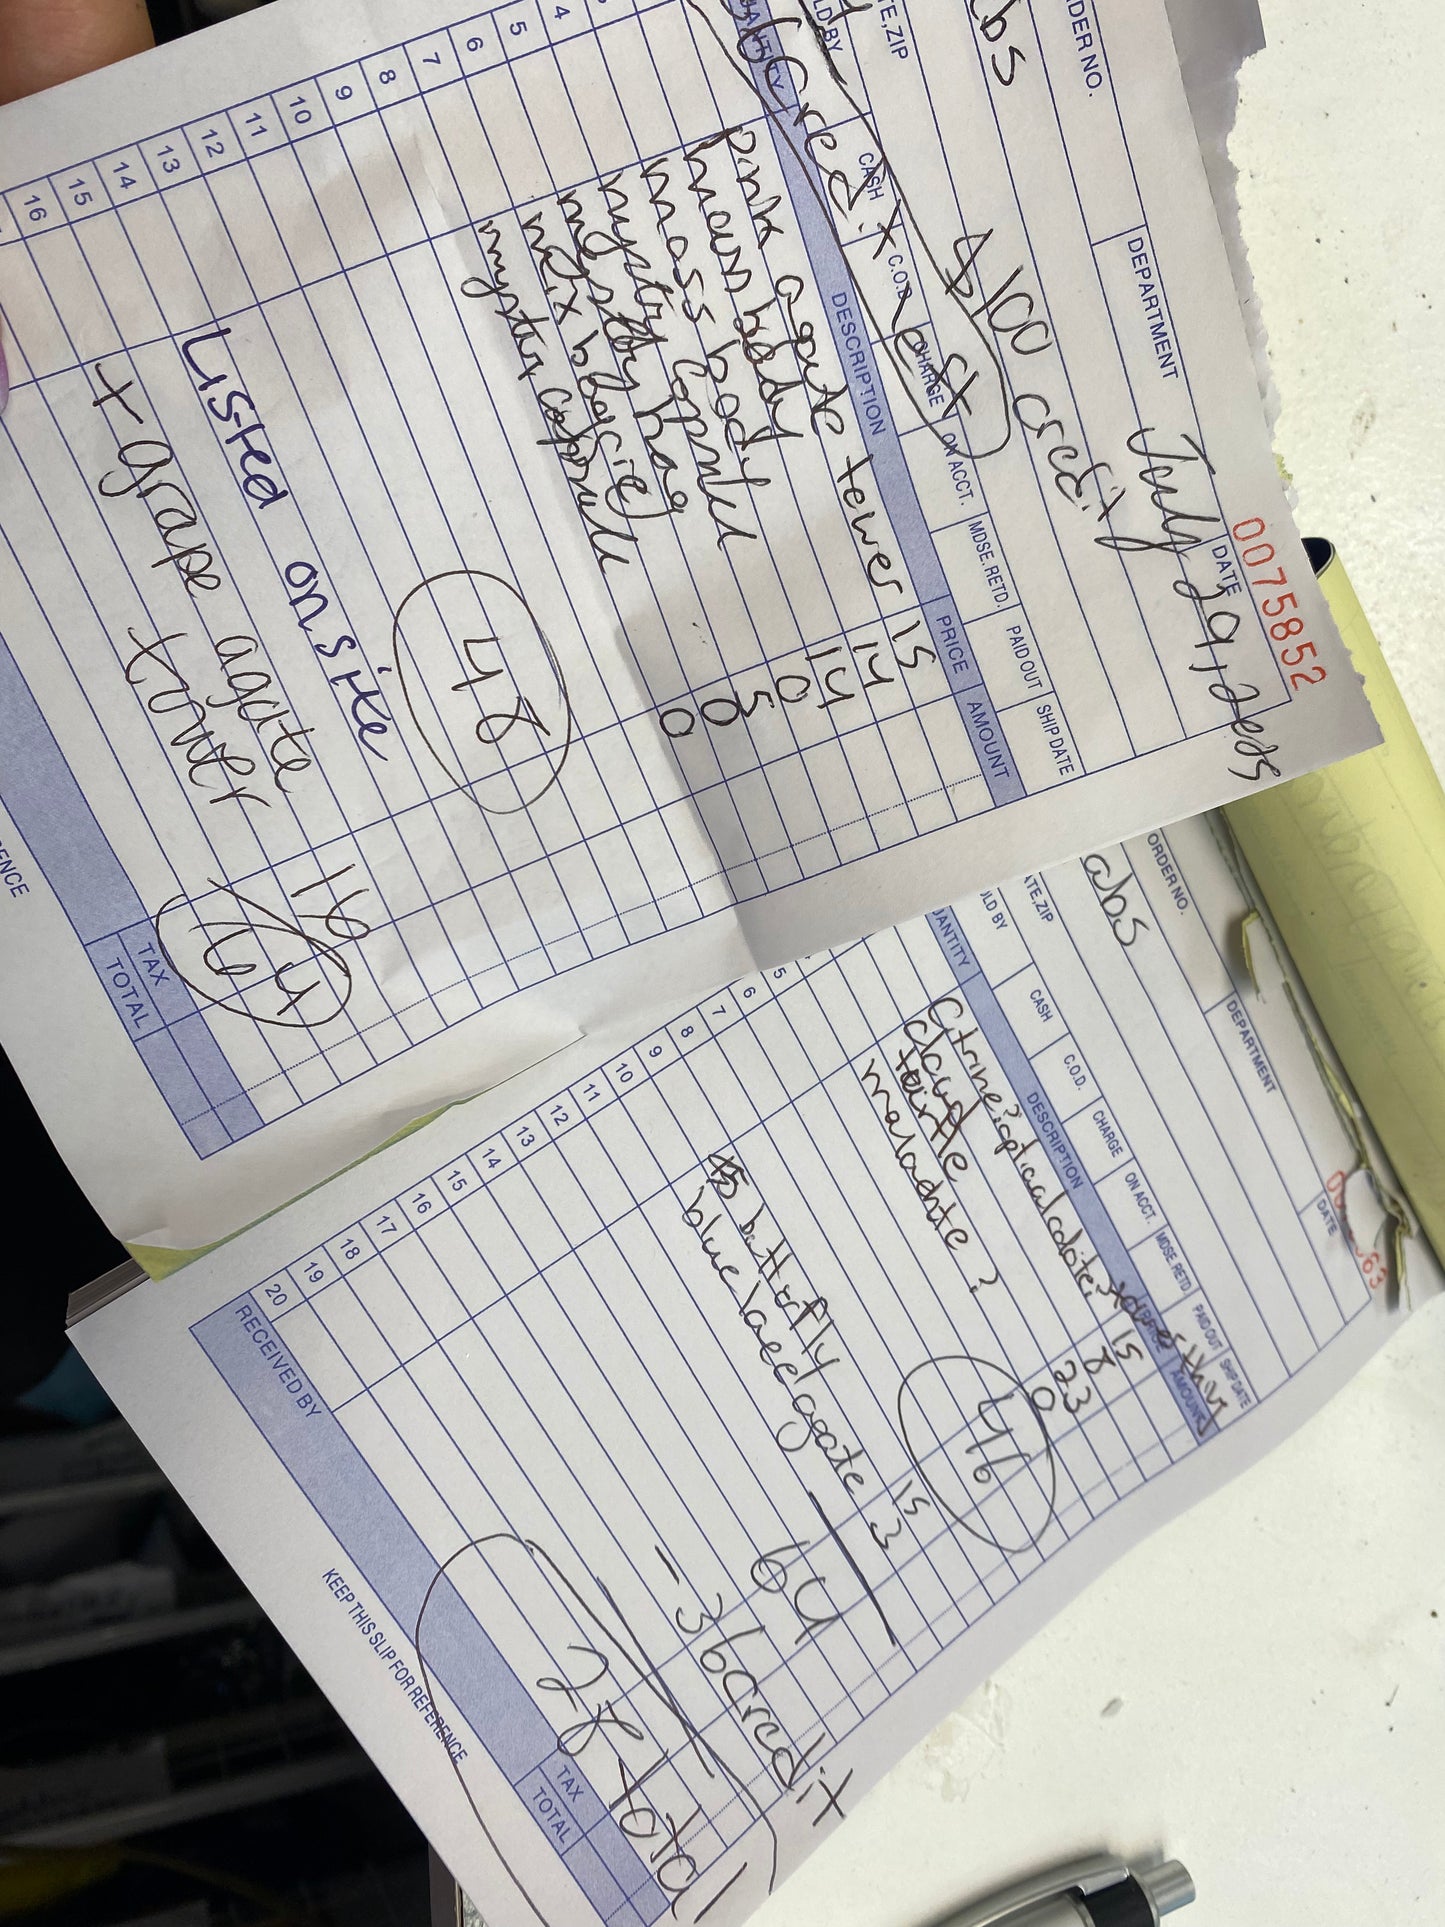 0075852
DER NO.
DEPARTMENT
DATE
July 29, 2025
bs
$100 credit
TE, ZIP
LD BY
CASH
C.O.D.
CHARGE
ON ACCT.
MDSE. RETD.
PAID OUT
SHIP DATE
36 Credit
next
ANTITY
DESCRIPTION
PRICE
AMOUNT
pink agate tower 15
moon body 14
moss body 14
mystry capsule 0
mystry bag 5
mix bag ie) 0
mystry capsule 0
4
5
6
7
8
9
10
11
12
13
14
15
16
48
Listed on site
+ grape agate tower 16
64
TAX
TOTAL
ENCE
63
ORDER NO.
DEPARTMENT
DATE
abs
TE, ZIP
LD BY
CASH
C.O.D.
CHARGE
ON ACCT.
MDSE. RETD.
PAID OUT
SHIP DATE
ANTITY
DESCRIPTION
PRICE
AMOUNT
Citrine? 15
cloud 8
turtle 23
malachite? 0
5
6
7
8
9
10
11
12
13
14
15
16
17
18
19
20
46
butterfly 15
blue lace agate 3
64
-36 credit
28 total
TAX
TOTAL
RECEIVED BY
KEEP THIS SLIP FOR REFERENCE